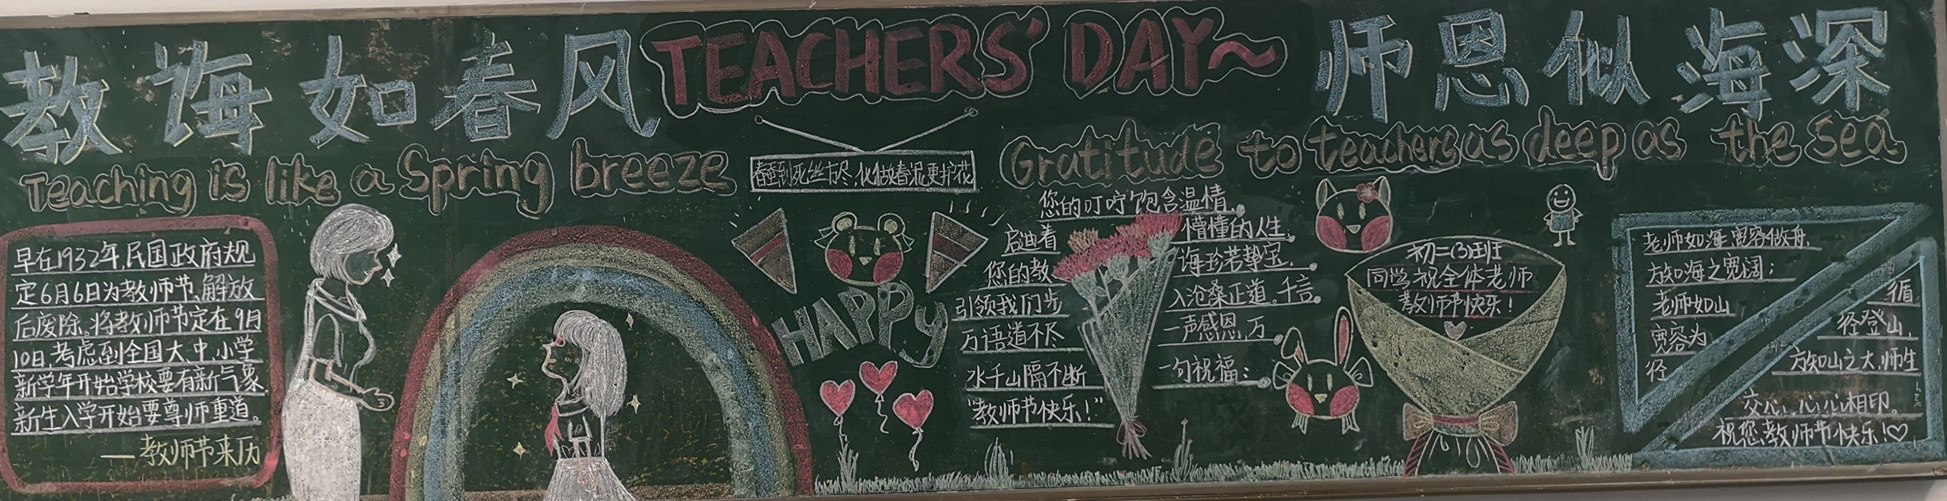 教诲如春风
TEACHERS' DAY~
师恩似海深
Teaching is like a Spring breeze
Gratitude to teachers as deep as the sea
春蚕到死丝方尽,化做春泥更护花
早在1932年,民国政府规
定6月6日为教师节,解放
后废除。将教师节定在9月
10日,考虑到全国大、中、小学
新学年开始学校要有新气象
新生入学开始要尊师重道。
——教师节来历
HAPPY
您的叮咛饱含温情,
启迪着 懵懂的人生,
您的教 诲珍若挚宝,
引领我们步 入沧桑正道。千言
万语道不尽 一声感恩,万
水千山隔不断 一句祝福:
“教师节快乐!”
初二(3)班
同学祝全体老师
教师节快乐!
老师如海,宽容做舟,
方知海之宽阔;
老师如山
宽容为
径
循
径登山,
方知山之大,师生
交心,心心相印。
祝您教师节快乐!♡